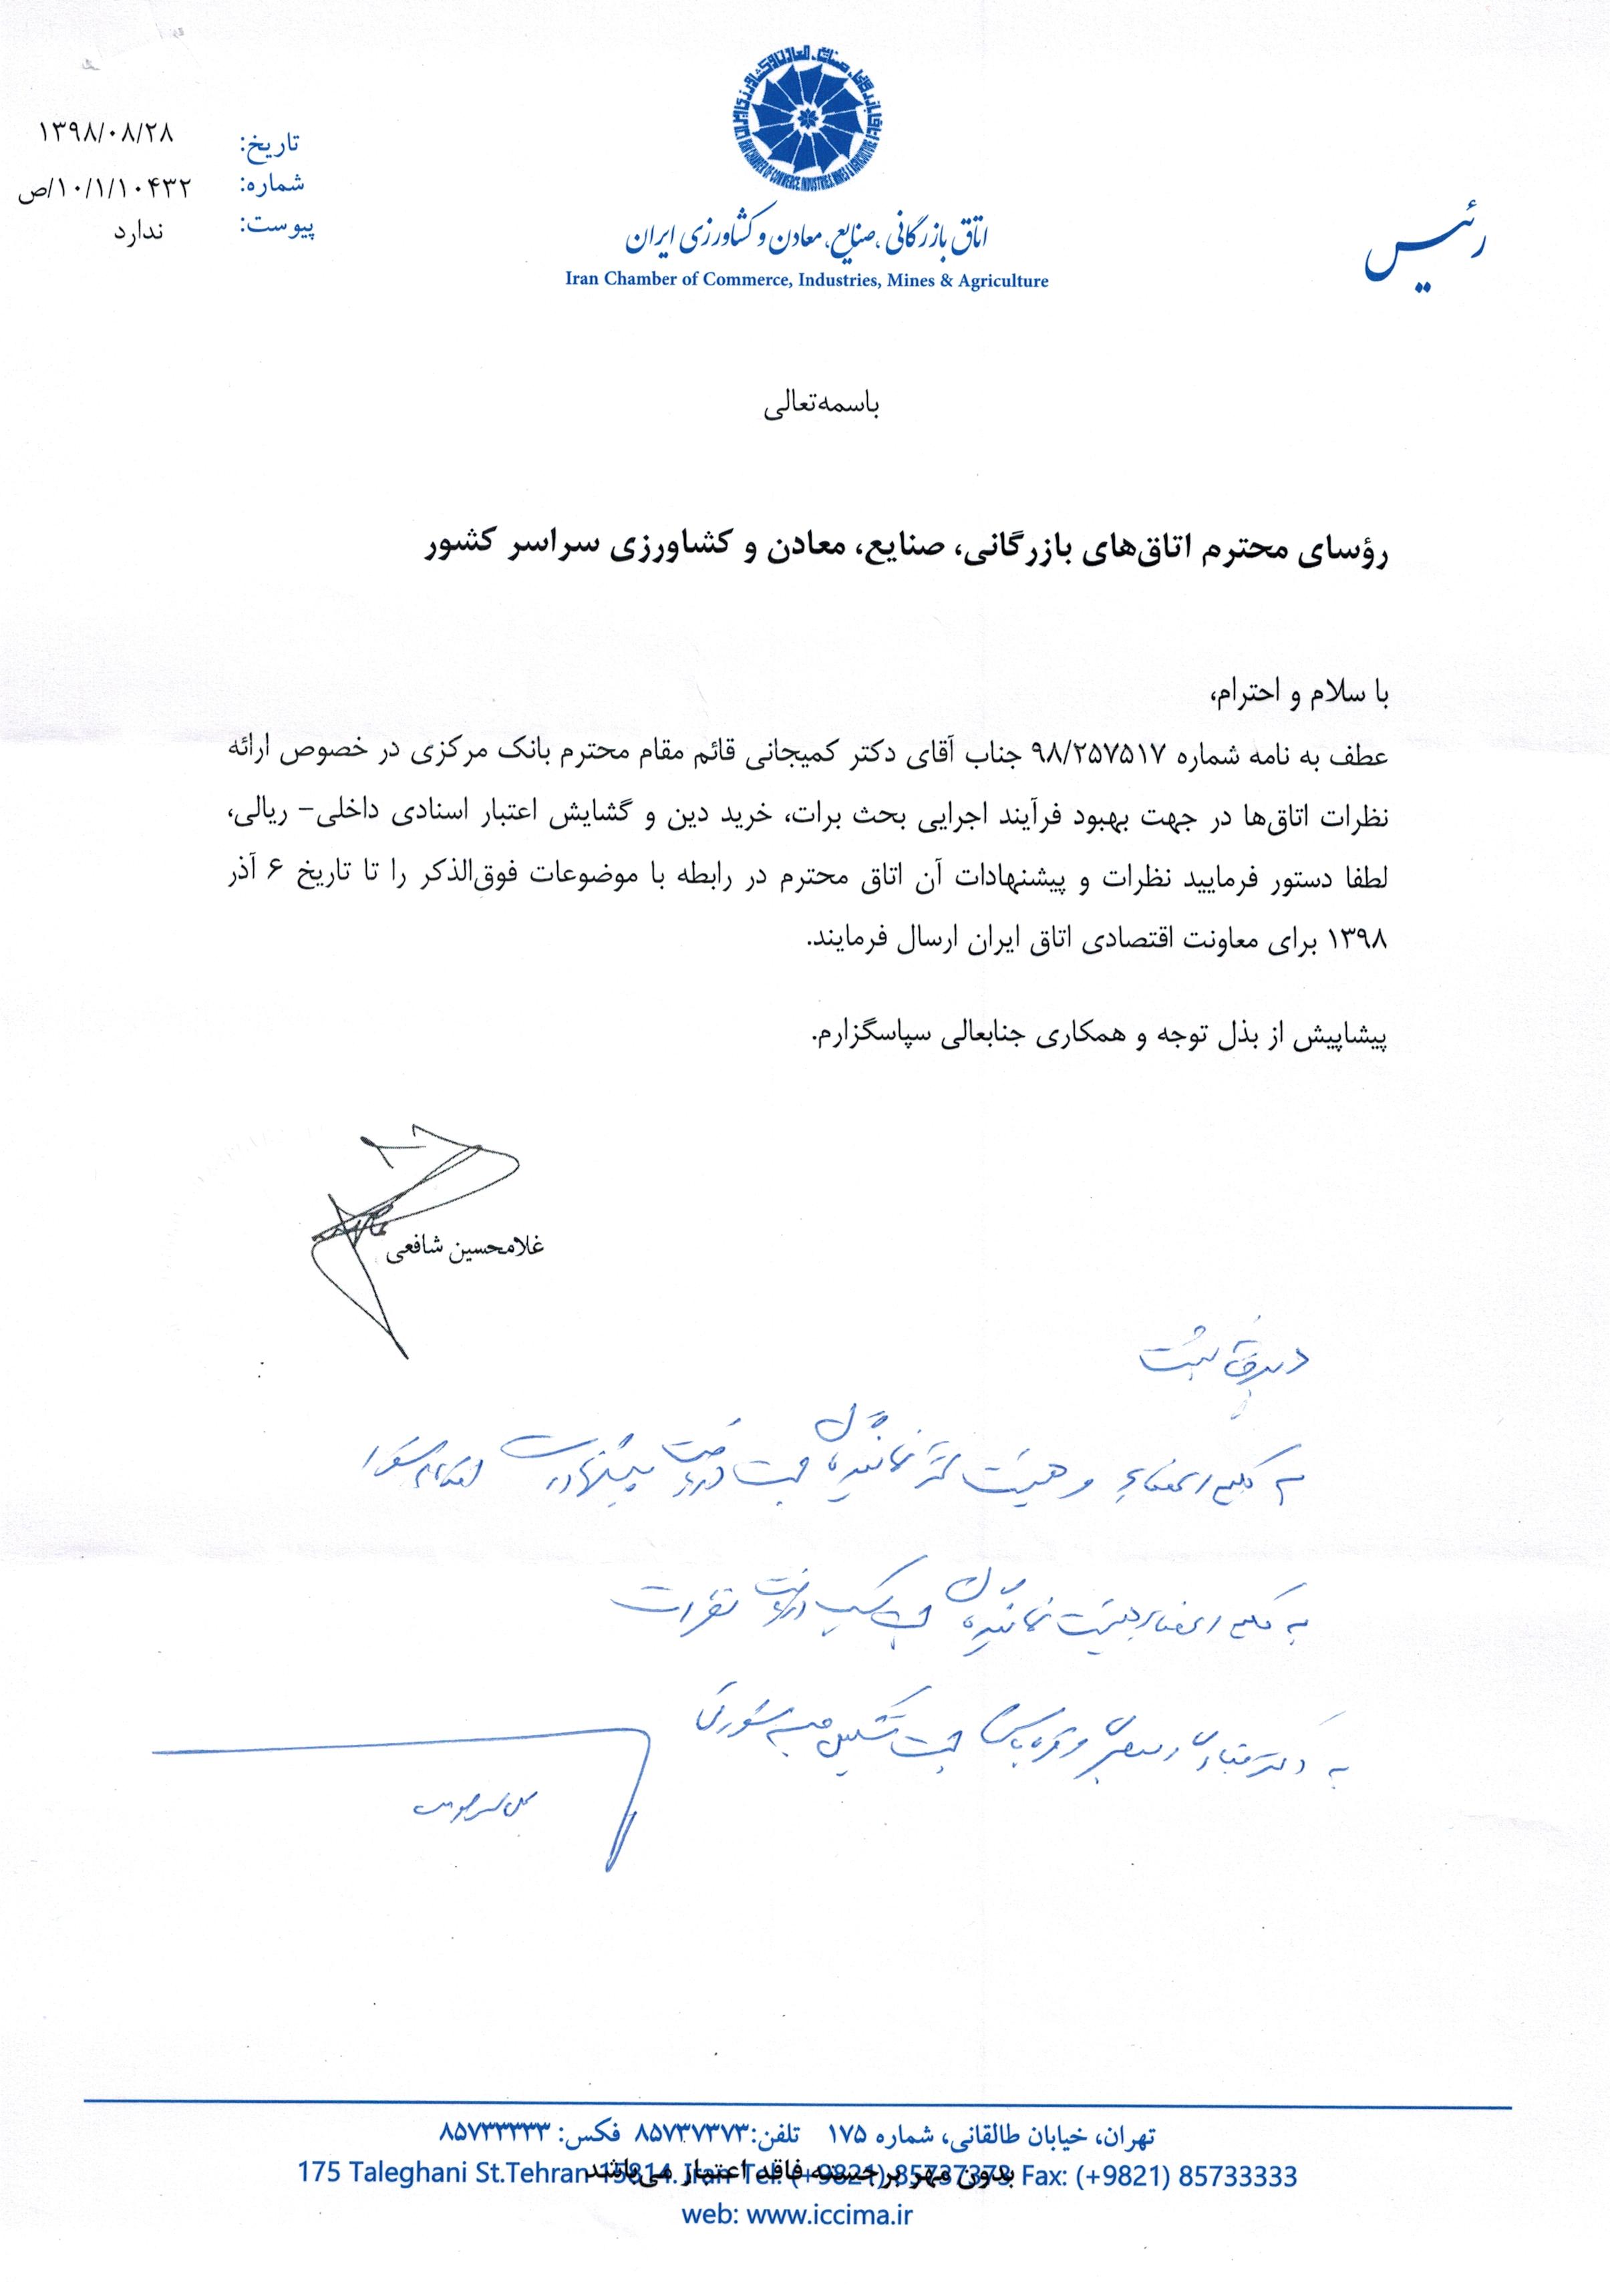 تاریخ: ۱۳۹۸/۰۸/۲۸
شماره: ۱۰/۱/۱۰۴۳۲/ص
پیوست: ندارد
اتاق بازرگانی، صنایع، معادن و کشاورزی ایران
Iran Chamber of Commerce, Industries, Mines & Agriculture
رئیس
باسمه‌تعالی
رؤسای محترم اتاق‌های بازرگانی، صنایع، معادن و کشاورزی سراسر کشور
با سلام و احترام،
عطف به نامه شماره ۹۸/۲۵۷۵۱۷ جناب آقای دکتر کمیجانی قائم مقام محترم بانک مرکزی در خصوص ارائه
نظرات اتاق‌ها در جهت بهبود فرآیند اجرایی بحث برات، خرید دین و گشایش اعتبار اسنادی داخلی- ریالی،
لطفا دستور فرمایید نظرات و پیشنهادات آن اتاق محترم در رابطه با موضوعات فوق‌الذکر را تا تاریخ ۶ آذر
۱۳۹۸ برای معاونت اقتصادی اتاق ایران ارسال فرمایند.
پیشاپیش از بذل توجه و همکاری جنابعالی سپاسگزارم.
غلامحسین شافعی
به کلیه اعضاء هیئت نمایندگان جهت دریافت نظرات
به دکتر جهت تشکیل
تهران، خیابان طالقانی، شماره ۱۷۵ تلفن: ۸۵۷۳۷۳۷۳ فکس: ۸۵۷۳۳۳۳۳
175 Taleghani St.Tehran 15814. Iran Tel: (+9821) 85737373 Fax: (+9821) 85733333
بدون مهر برجسته فاقد اعتبار می‌باشد
web: www.iccima.ir